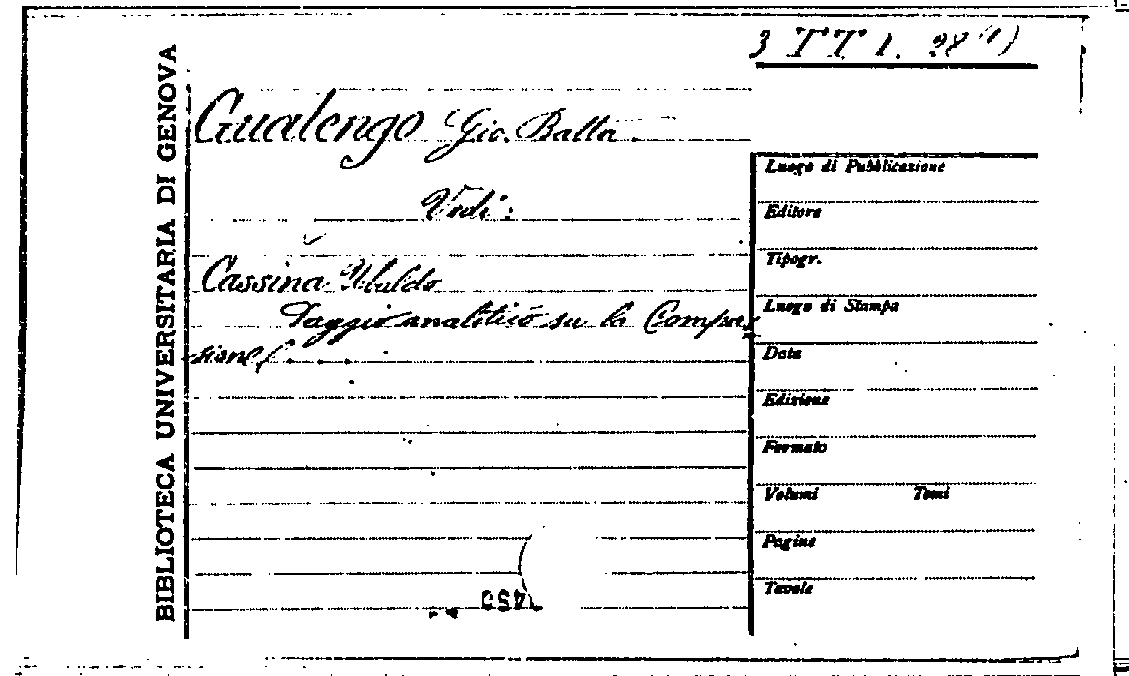 3 TT 1. 28 (1)
BIBLIOTECA UNIVERSITARIA DI GENOVA
Gualengo Gio. Batta.
Vedi:
Cassina Ubaldo
Saggio analitico su la Compas
sione/.
Luogo di Pubblicazione
Editore
Tipogr.
Luogo di Stampa
Data
Edizione
Formato
Volumi Tomi
Pagine
Tavole